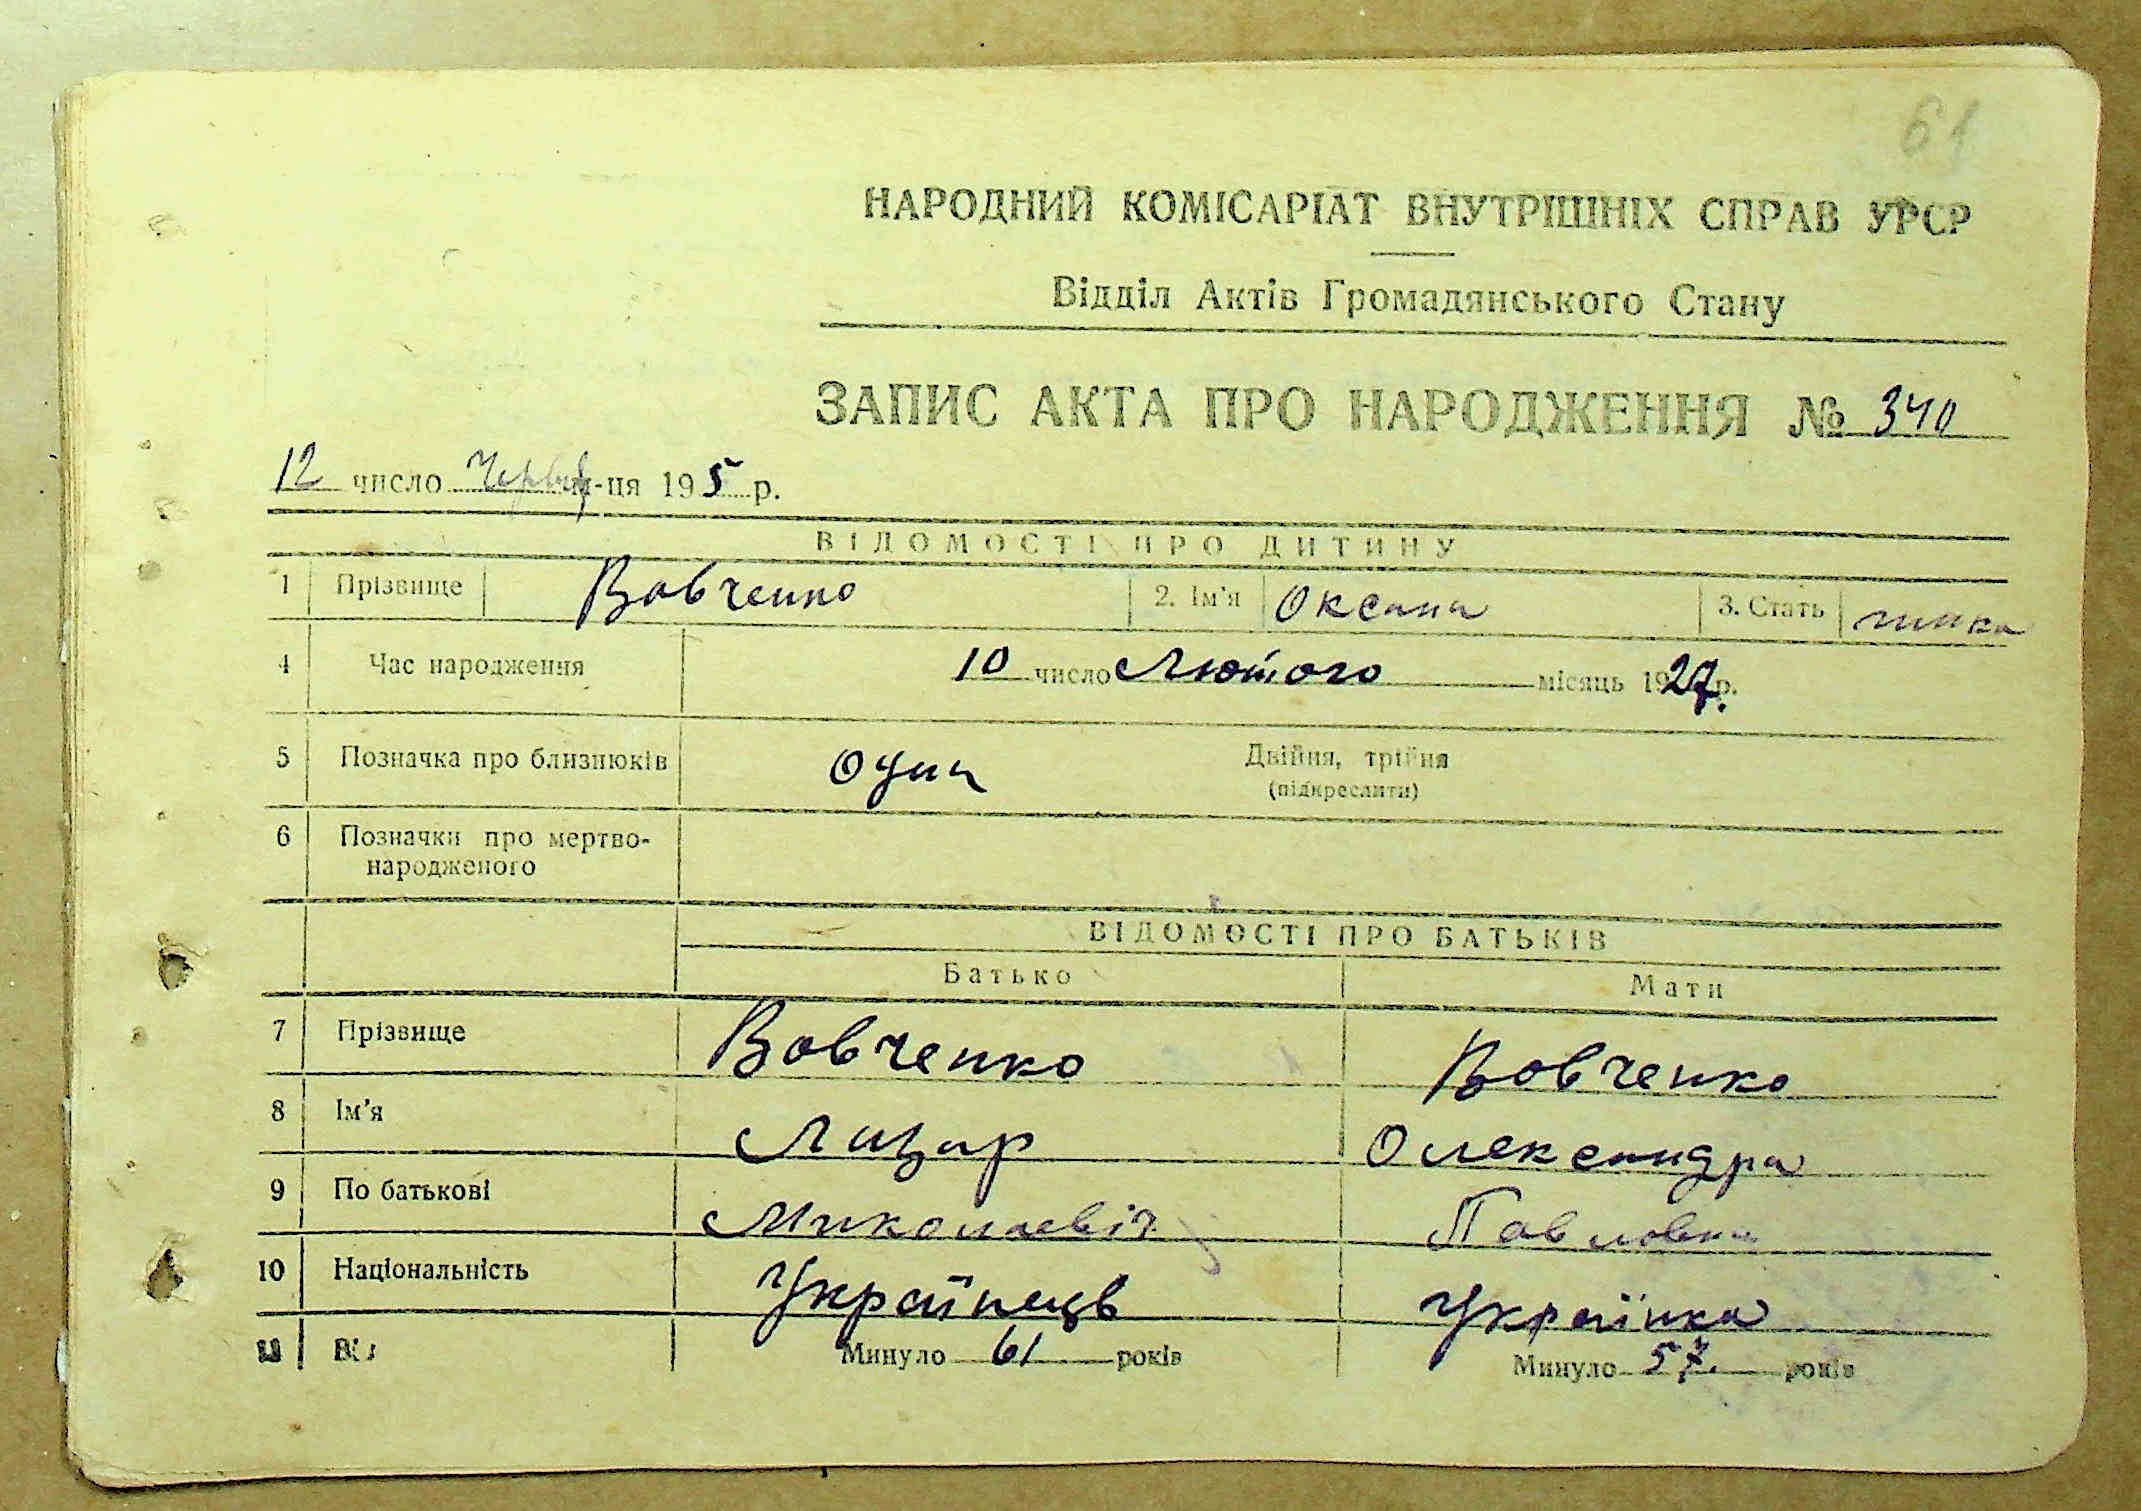 61
НАРОДНИЙ КОМІСАРІАТ ВНУТРІШНІХ СПРАВ УРСР
Відділ Актів Громадянського Стану
ЗАПИС АКТА ПРО НАРОДЖЕННЯ № 340
12 число м-ця 195 р.
ВІДОМОСТІ ПРО ДИТИНУ
1 Прізвище Вовченко 2. Ім'я Оксана 3. Стать
4 Час народження 10 число Лютого місяць 1927 р.
5 Позначка про близнюків Один Двійня, трійня
(підкреслити)
6 Позначки про мертво-
народженого
ВІДОМОСТІ ПРО БАТЬКІВ
Батько Мати
7 Прізвище Вовченко Вовченко
8 Ім'я Лазар Олександра
9 По батькові Миколаевіч Павловна
10 Національність Українець Українка
11 Вік Минуло 61 років Минуло 57 років